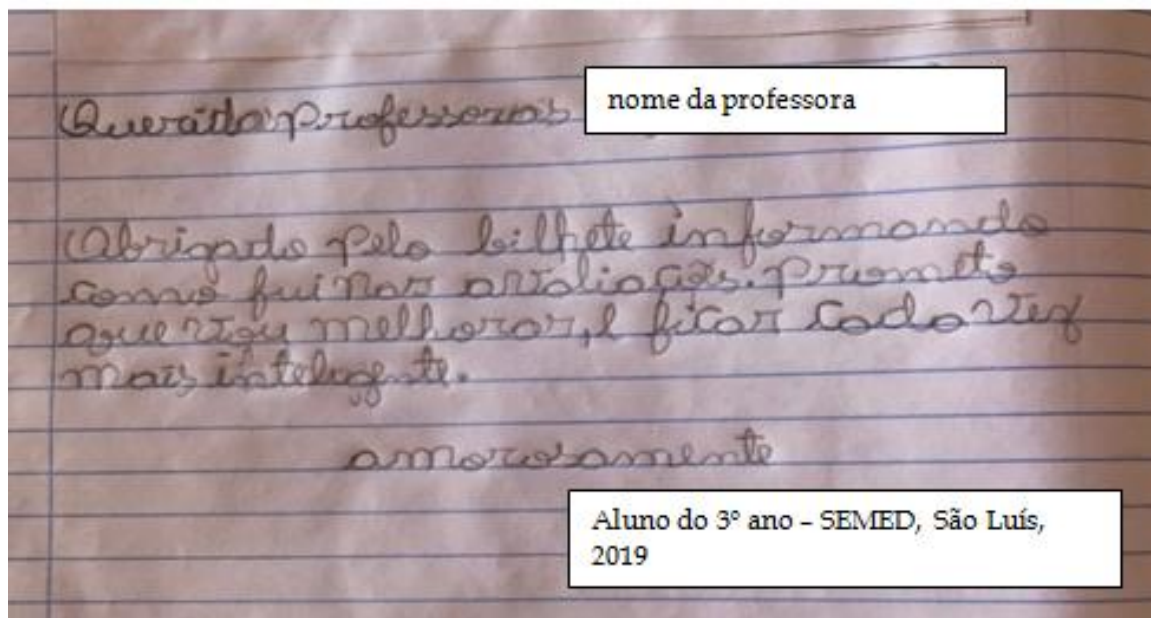 Querida professora nome da professora
Obrigado pelo bilhete informando
como fui nas avaliações. prometo
que vou melhorar, e ficar cada vez
mais inteligente.
amorosamente
Aluno do 3º ano – SEMED, São Luís,
2019